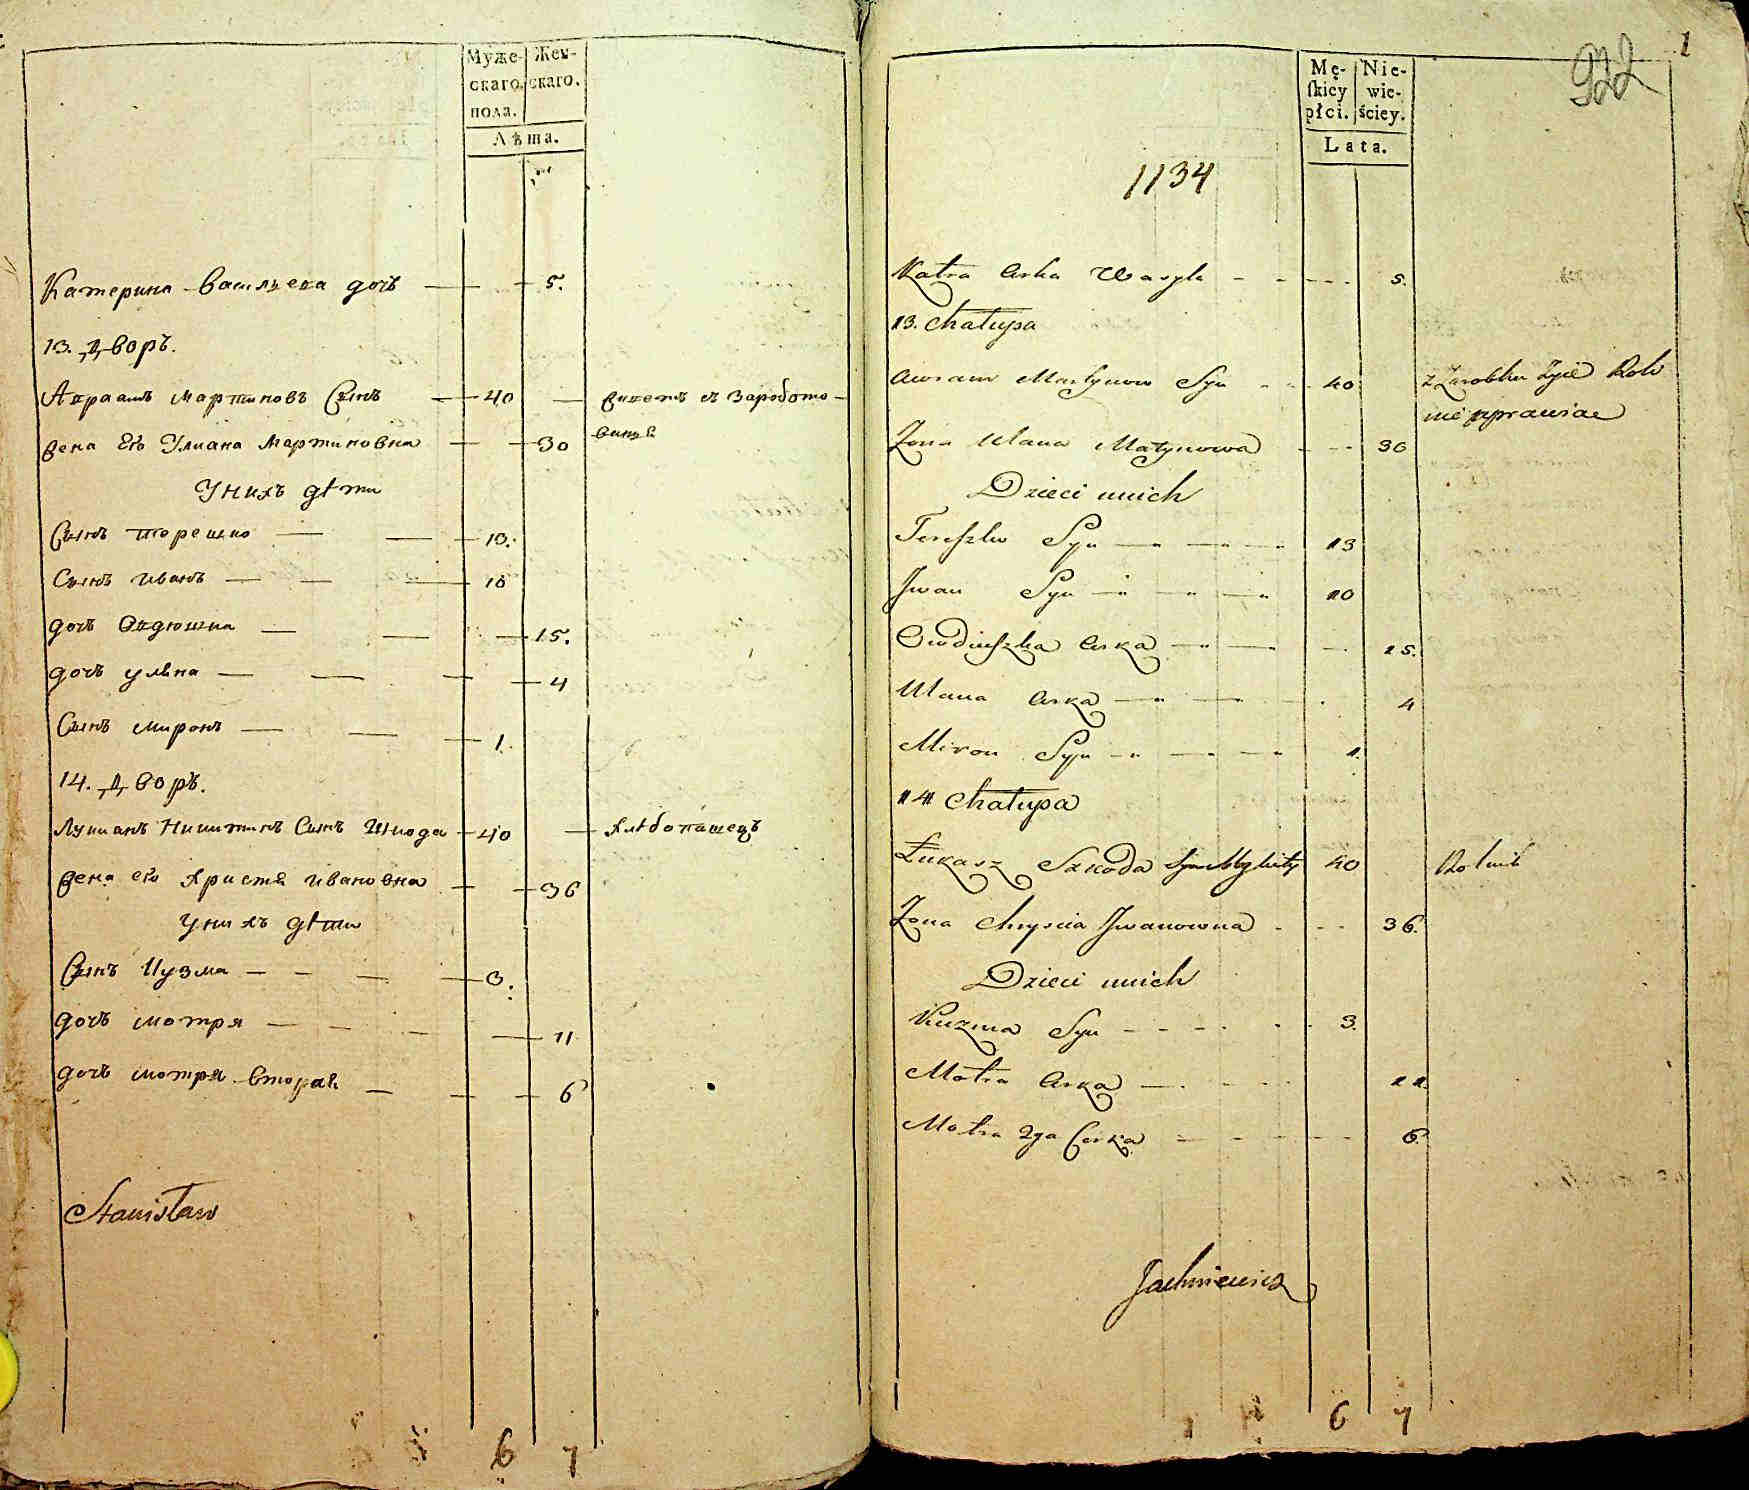 Муже-
скаго
пола.
Жен-
скаго.
Лѣта.
Катерина Васильева дочъ 5.
13. Дворъ.
Авраамъ Мартиновъ Сынъ 40 живетъ съ Заработо-
жена Его Улиана Мартиновна 30
Унихъ дѣти
Сынъ терешко 13.
Сынъ иванъ 10
дочъ Овдюшка 15.
дочъ уляна 4
Сынъ миронъ 1.
14. Дворъ.
Лукианъ Никитинъ Сынъ Шкода 40 хлѣбопашецъ
жена его христя ивановна 36
унихъ дѣти
Сынъ Кузма 3.
дочъ мотря 11
дочъ мотря вторая 6
Stanisław
6 7
1
922
Mę-
skiey
płci.
Nie-
wie-
ściey.
Lata.
1134
Katra Curka Wasyla 5.
13. Chałupa
Awram Martynow Syn 40 z Zarobku żyie Roli
nie uprawia
Żona Ulana Matynowa 30
Dzieci unich
Tereszko Syn 13
Jwan Syn 10
Owdiuszka Curka 15.
Ulana Curka 4
Miron Syn 1.
14 Chałupa
Łukasz Szkoda Syn Mykity 40 Rolnik
Żona Chryscia Jwanowna 36.
Dzieci unich
Kuzma Syn 3.
Motra Curka 11.
Motra 2ga Curka 6.
Jachniewicz
6 7